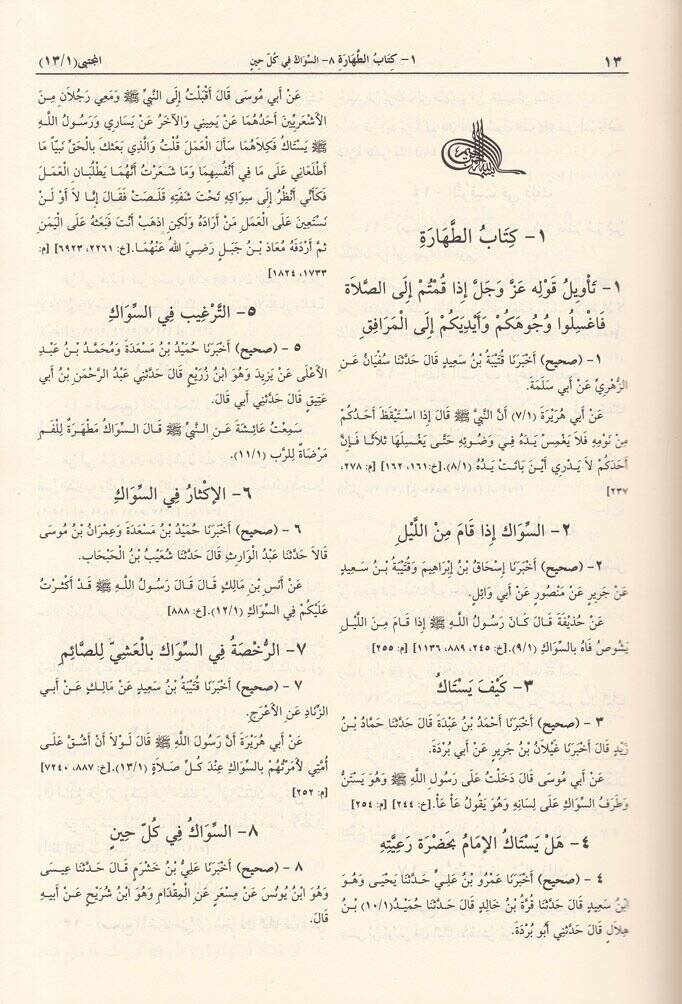 ١٣
١- كِتَابُ الطَّهَارَةِ ٨- السِّوَاكُ فِي كُلِّ حِينٍ
المجتبى (١٣/١)
١- كِتَابُ الطَّهَارَةِ
١- تَأْوِيلُ قَوْلِهِ عَزَّ وَجَلَّ إِذَا قُمْتُمْ إِلَى الصَّلَاةِ
فَاغْسِلُوا وُجُوهَكُمْ وَأَيْدِيَكُمْ إِلَى الْمَرَافِقِ
١- (صحيح) أَخْبَرَنَا قُتَيْبَةُ بْنُ سَعِيدٍ قَالَ حَدَّثَنَا سُفْيَانُ عَنِ
الزُّهْرِيِّ عَنْ أَبِي سَلَمَةَ.
عَنْ أَبِي هُرَيْرَةَ (٧/١) أَنَّ النَّبِيَّ ﷺ قَالَ إِذَا اسْتَيْقَظَ أَحَدُكُمْ
مِنْ نَوْمِهِ فَلَا يَغْمِسْ يَدَهُ فِي وَضُوئِهِ حَتَّى يَغْسِلَهَا ثَلَاثًا فَإِنَّ
أَحَدَكُمْ لَا يَدْرِي أَيْنَ بَاتَتْ يَدُهُ (٨/١).[خ:١٦١، ١٦٢] [م: ٢٧٨،
٢٣٧]
٢- السِّوَاكِ إِذَا قَامَ مِنَ اللَّيْلِ
٢- (صحيح) أَخْبَرَنَا إِسْحَاقُ بْنُ إِبْرَاهِيمَ وَقُتَيْبَةُ بْنُ سَعِيدٍ
عَنْ جَرِيرٍ عَنْ مَنْصُورٍ عَنْ أَبِي وَائِلٍ.
عَنْ حُذَيْفَةَ قَالَ كَانَ رَسُولُ اللَّهِ ﷺ إِذَا قَامَ مِنَ اللَّيْلِ
يَشُوصُ فَاهُ بِالسِّوَاكِ (٩/١).[خ: ٢٤٥، ٨٨٩، ١١٣٦] [م: ٢٥٥]
٣- كَيْفَ يَسْتَاكُ
٣ - (صحيح) أَخْبَرَنَا أَحْمَدُ بْنُ عَبْدَةَ قَالَ حَدَّثَنَا حَمَّادُ بْنُ
زَيْدٍ قَالَ أَخْبَرَنَا غَيْلَانُ بْنُ جَرِيرٍ عَنْ أَبِي بُرْدَةَ.
عَنْ أَبِي مُوسَى قَالَ دَخَلْتُ عَلَى رَسُولِ اللَّهِ ﷺ وَهُوَ يَسْتَنُّ
وَطَرَفُ السِّوَاكِ عَلَى لِسَانِهِ وَهُوَ يَقُولُ عَأْ عَأْ.[خ: ٢٤٤] [م: ٢٥٤]
٤- هَلْ يَسْتَاكُ الإِمَامُ بِحَضْرَةِ رَعِيَّتِهِ
٤ - (صحيح) أَخْبَرَنَا عَمْرُو بْنُ عَلِيٍّ حَدَّثَنَا يَحْيَى وَهُوَ
ابْنُ سَعِيدٍ قَالَ حَدَّثَنَا قُرَّةُ بْنُ خَالِدٍ قَالَ حَدَّثَنَا حُمَيْدُ(١٠/١) بْنُ
هِلَالٍ قَالَ حَدَّثَنِي أَبُو بُرْدَةَ.
عَنْ أَبِي مُوسَى قَالَ أَقْبَلْتُ إِلَى النَّبِيِّ ﷺ وَمَعِي رَجُلَانِ مِنَ
الأَشْعَرِيِّينَ أَحَدُهُمَا عَنْ يَمِينِي وَالآخَرُ عَنْ يَسَارِي وَرَسُولُ اللَّهِ
ﷺ يَسْتَاكُ فَكِلَاهُمَا سَأَلَ الْعَمَلَ قُلْتُ وَالَّذِي بَعَثَكَ بِالْحَقِّ نَبِيًّا مَا
أَطْلَعَانِي عَلَى مَا فِي أَنْفُسِهِمَا وَمَا شَعَرْتُ أَنَّهُمَا يَطْلُبَانِ الْعَمَلَ
فَكَأَنِّي أَنْظُرُ إِلَى سِوَاكِهِ تَحْتَ شَفَتِهِ قَلَصَتْ فَقَالَ إِنَّا لَا أَوْ لَنْ
نَسْتَعِينَ عَلَى الْعَمَلِ مَنْ أَرَادَهُ وَلَكِنِ اذْهَبْ أَنْتَ فَبَعَثَهُ عَلَى الْيَمَنِ
ثُمَّ أَرْدَفَهُ مُعَاذُ بْنُ جَبَلٍ رَضِيَ اللَّهُ عَنْهُمَا.[خ: ٢٢٦١، ٦٩٢٣] [م:
١٧٣٣، ١٨٢٤]
٥- التَّرْغِيبِ فِي السِّوَاكِ
٥ - (صحيح) أَخْبَرَنَا حُمَيْدُ بْنُ مَسْعَدَةَ وَمُحَمَّدُ بْنُ عَبْدِ
الأَعْلَى عَنْ يَزِيدَ وَهُوَ ابْنُ زُرَيْعٍ قَالَ حَدَّثَنِي عَبْدُ الرَّحْمَنِ بْنُ أَبِي
عَتِيقٍ قَالَ حَدَّثَنِي أَبِي قَالَ.
سَمِعْتُ عَائِشَةَ عَنِ النَّبِيِّ ﷺ قَالَ السِّوَاكُ مَطْهَرَةٌ لِلْفَمِ
مَرْضَاةٌ لِلرَّبِّ (١١/١).
٦- الإِكْثَارُ فِي السِّوَاكِ
٦ - (صحيح) أَخْبَرَنَا حُمَيْدُ بْنُ مَسْعَدَةَ وَعِمْرَانُ بْنُ مُوسَى
قَالَا حَدَّثَنَا عَبْدُ الْوَارِثِ قَالَ حَدَّثَنَا شُعَيْبُ بْنُ الْحَبْحَابِ.
عَنْ أَنَسِ بْنِ مَالِكٍ قَالَ قَالَ رَسُولُ اللَّهِ ﷺ قَدْ أَكْثَرْتُ
عَلَيْكُمْ فِي السِّوَاكِ (١٢/١).[خ: ٨٨٨]
٧- الرُّخْصَةُ فِي السِّوَاكِ بِالْعَشِيِّ لِلصَّائِمِ
٧ - (صحيح) أَخْبَرَنَا قُتَيْبَةُ بْنُ سَعِيدٍ عَنْ مَالِكٍ عَنْ أَبِي
الزِّنَادِ عَنِ الأَعْرَجِ.
عَنْ أَبِي هُرَيْرَةَ أَنَّ رَسُولَ اللَّهِ ﷺ قَالَ لَوْلَا أَنْ أَشُقَّ عَلَى
أُمَّتِي لأَمَرْتُهُمْ بِالسِّوَاكِ عِنْدَ كُلِّ صَلَاةٍ (١٣/١).[خ: ٨٨٧، ٧٢٤٠]
[م: ٢٥٢]
٨- السِّوَاكُ فِي كُلِّ حِينٍ
٨ - (صحيح) أَخْبَرَنَا عَلِيُّ بْنُ خَشْرَمٍ قَالَ حَدَّثَنَا عِيسَى
وَهُوَ ابْنُ يُونُسَ عَنْ مِسْعَرٍ عَنِ الْمِقْدَامِ وَهُوَ ابْنُ شُرَيْحٍ عَنْ أَبِيهِ
قَالَ.